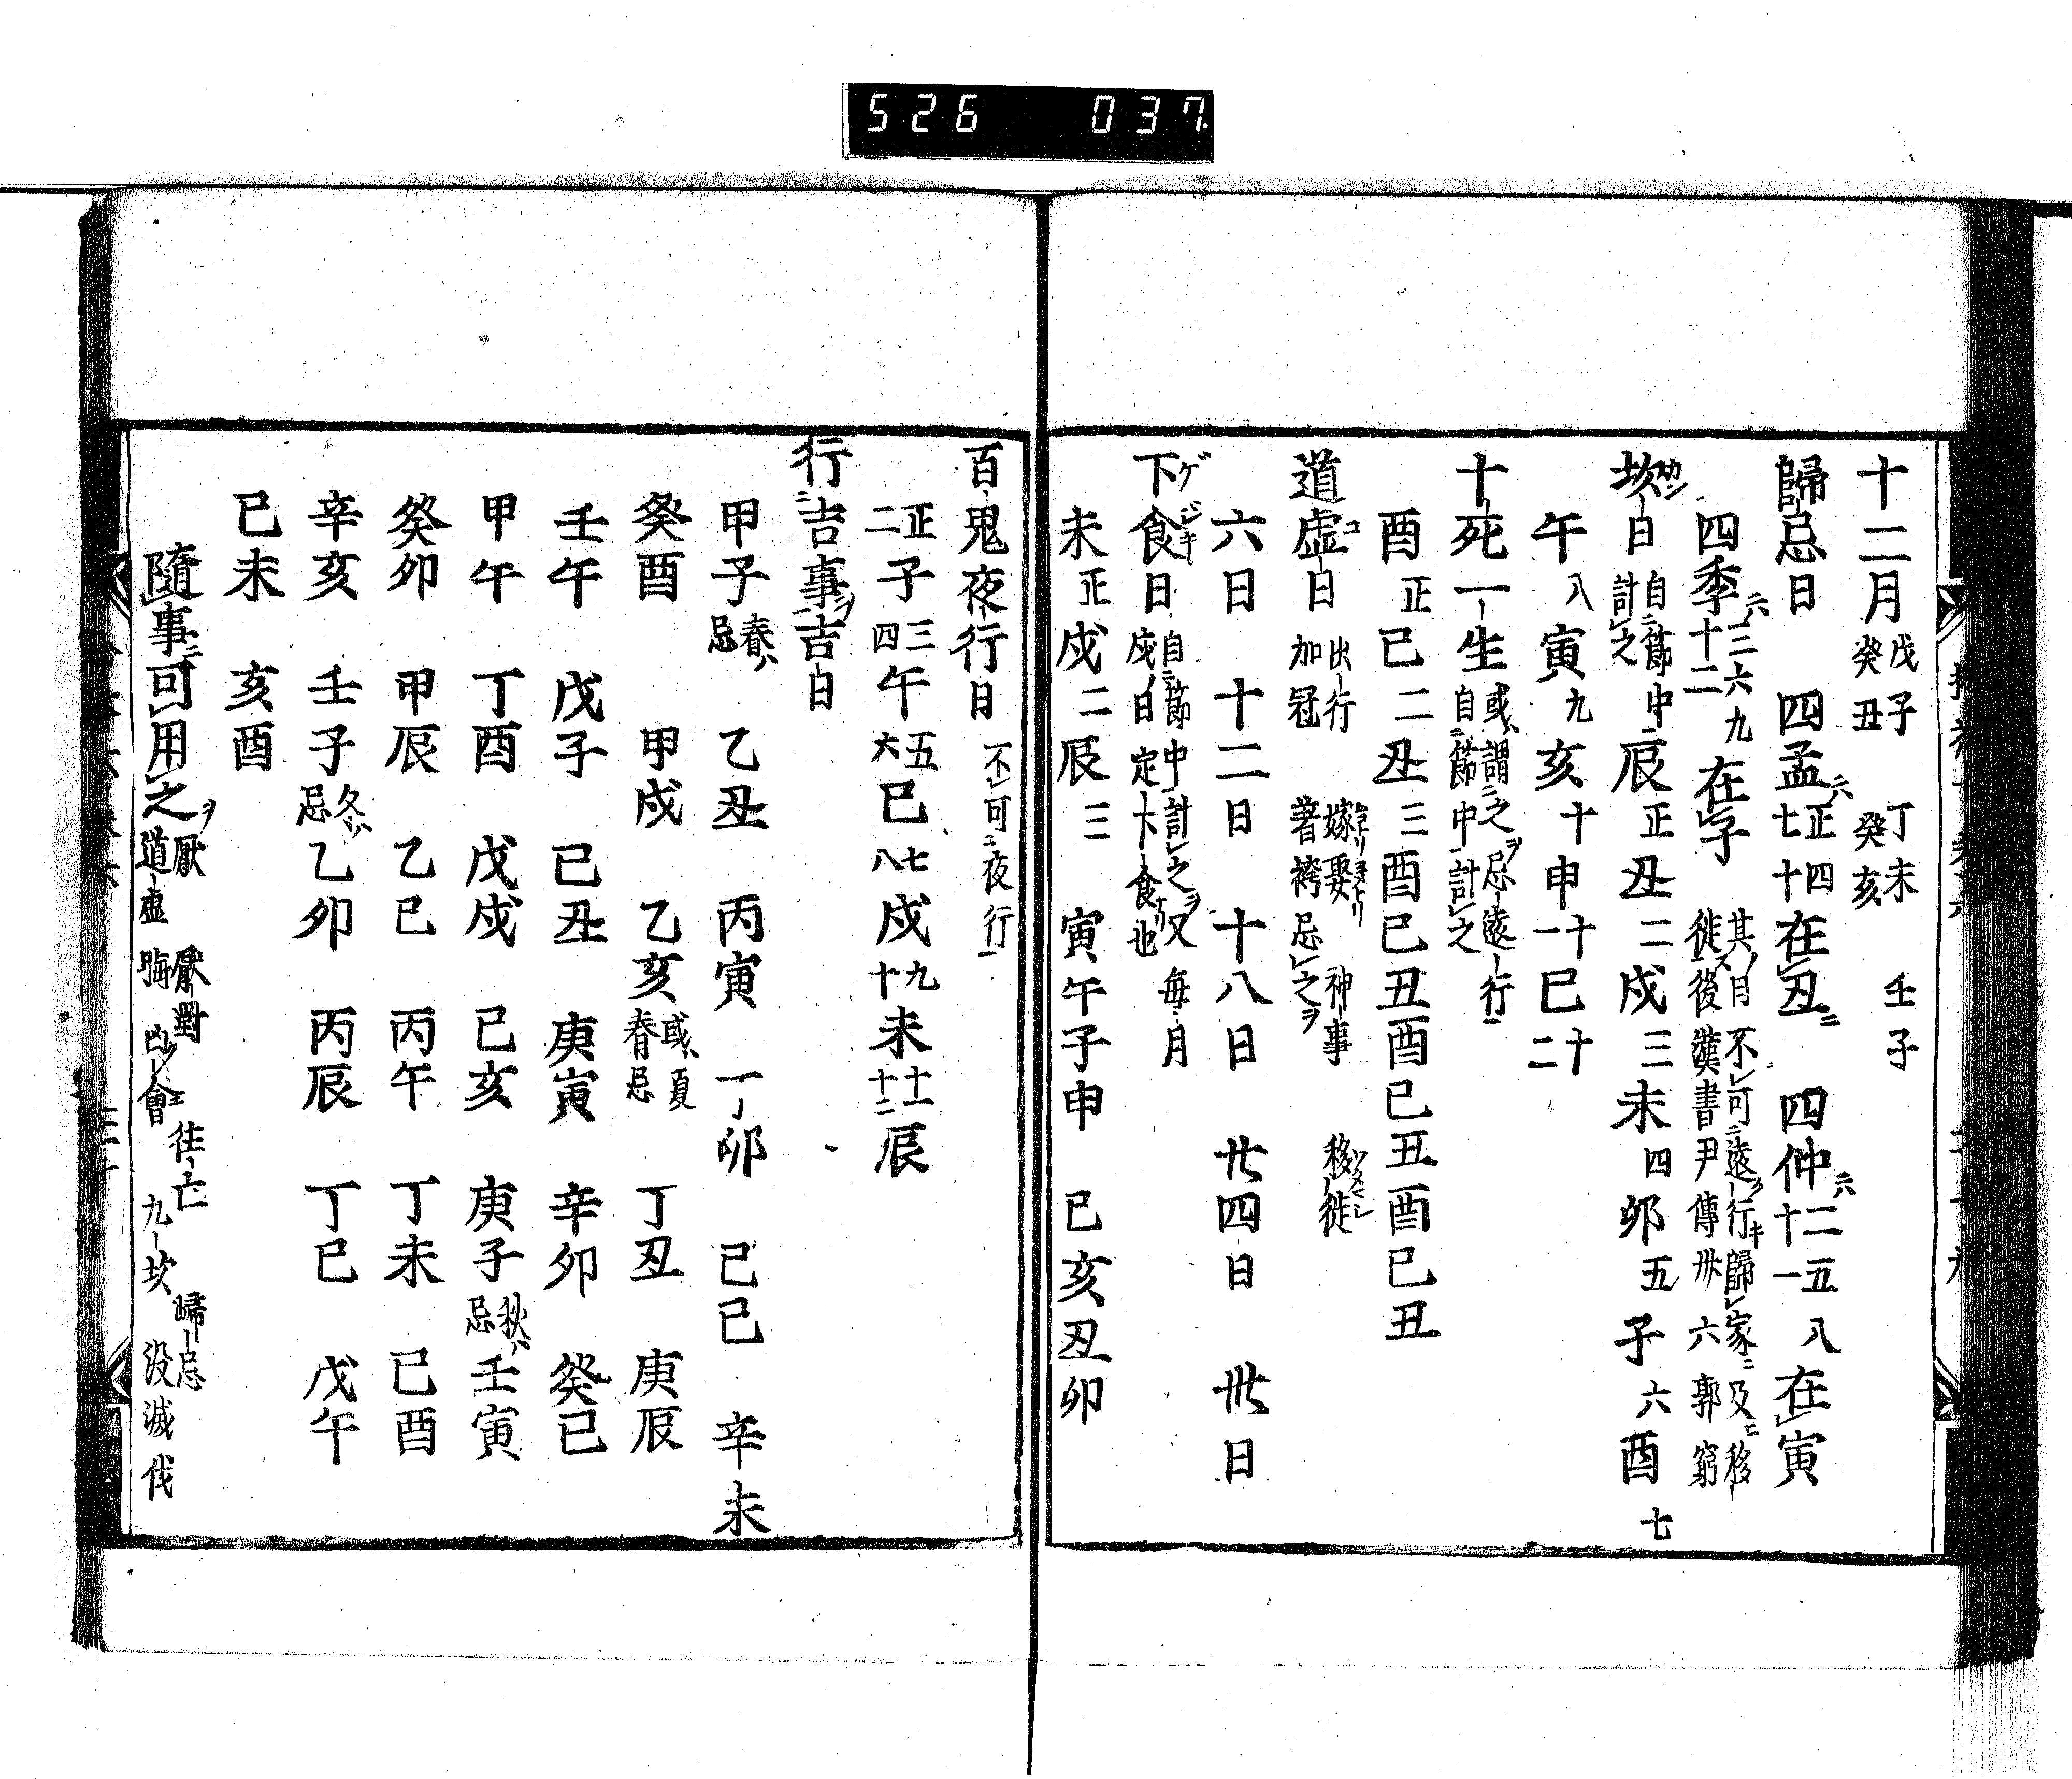 526 037
十二月 戊子 丁未 壬子 癸丑 癸亥
歸忌日 四孟ニハ正四七十在丑ニ 四仲ニハ二五八十一在寅
四季ニハ三六九十二在子 其ノ日不可遠ク行キ歸家ニ及ニ移徙ス後漢書尹傳卅六郭躬
坎日 自節中計之 辰正丑二戌三未四卯五子六酉七
午八寅九亥十申十一巳十二
十死一生 或ハ謂之ヲ忌遠行 自節中計之
酉正巳二丑三酉巳丑酉巳丑酉巳丑
道虚日 出行 嫁娶 神事 移徙 加冠 著袴 忌之ヲ
六日 十二日 十八日 廿四日 卅日
下食日 自節中計之ヲ又毎月戌ノ日定下食也
未正戌二辰三 寅午子申 巳亥丑卯
百鬼夜行日 不可夜行
正二子三四午五六巳七八戌九十未十一十二辰
行吉事ヲ吉日
甲子春ハ忌 乙丑 丙寅 丁卯 己巳 辛未
癸酉 甲戌 乙亥或ハ夏春忌 丁丑 庚辰
壬午 戊子 己丑 庚寅 辛卯 癸巳
甲午 丁酉 戊戌 己亥 庚子秋ハ忌 壬寅
癸卯 甲辰 乙巳 丙午 丁未 己酉
辛亥 壬子冬ハ忌 乙卯 丙辰 丁巳 戊午
己未 亥酉
隨事ニ可用之ヲ 厭 厭對 往亡 歸忌 道虚 晦 凶會 九坎 沒滅伐